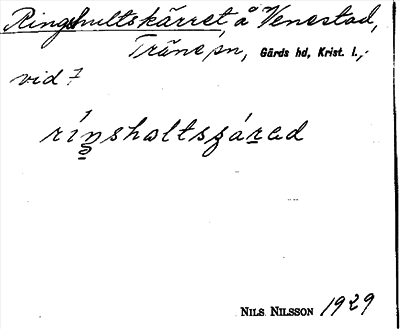 Ringshultskärret, å Venestad,
Träne sn, Gärds hd, Krist. l.,
vid 7
NILS NILSSON 1929